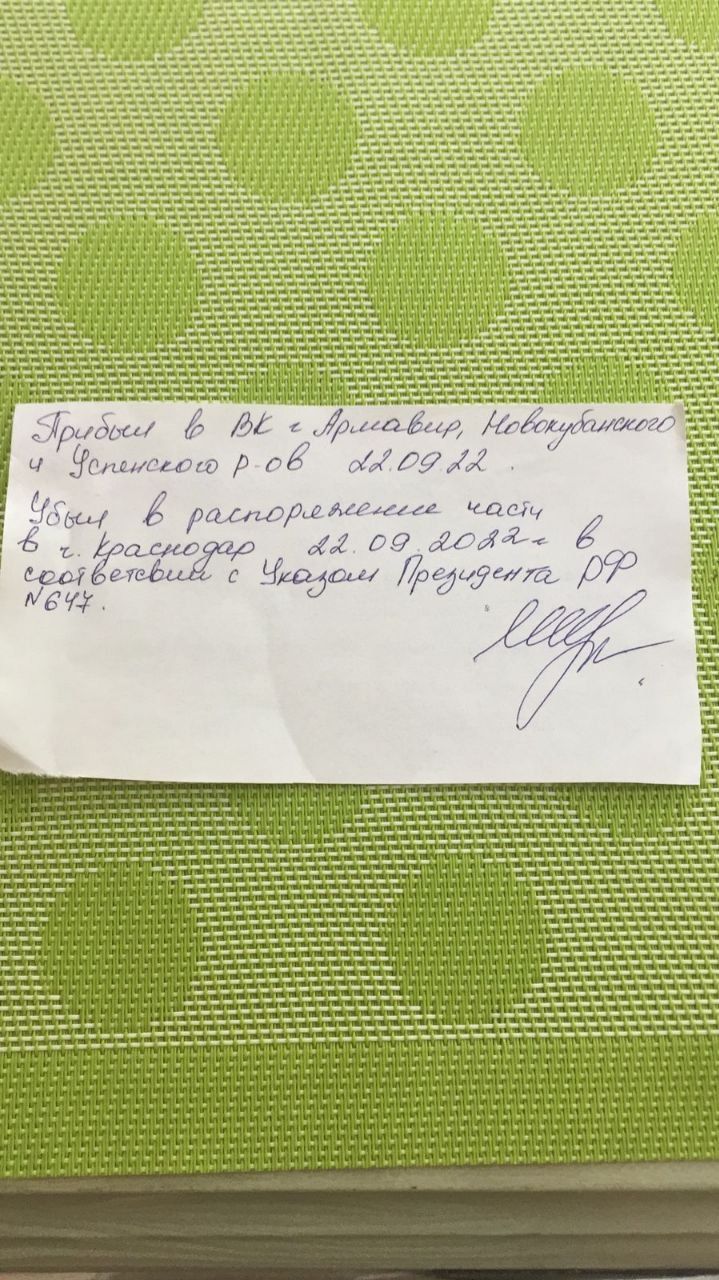 Прибыл в ВК г Армавир, Новокубанского
и Успенского р-ов 22.09.22.
Убыл в распоряжение части
в г. Краснодар 22.09.2022г в
соответсвии с Указом Президента РФ
№647.